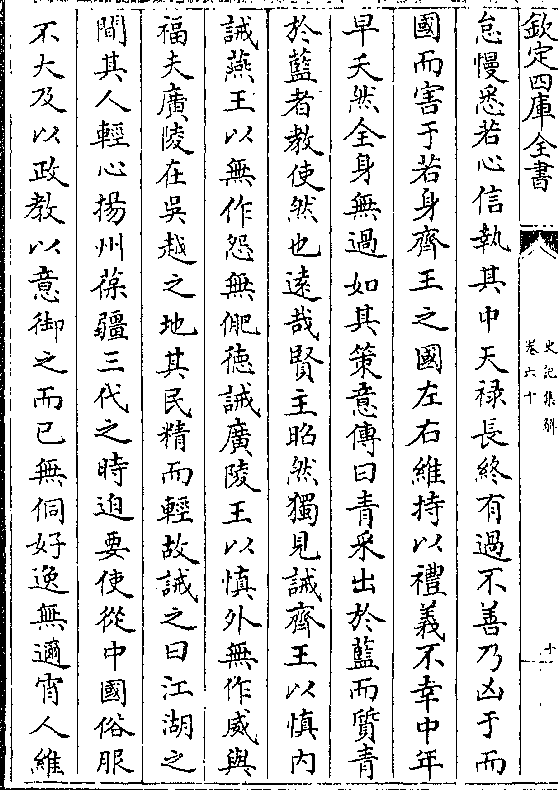 欽定四庫全書
史記集解
卷六十
十一
怠慢悉若心信執其中天祿長終有過不善乃凶于而
國而害于若身齊王之國左右維持以禮義不幸中年
早夭然全身無過如其策意傳曰青采出於藍而質青
於藍者教使然也遠哉賢主昭然獨見誡齊王以慎内
誡燕王以無作怨無俷徳誡廣陵王以慎外無作威與
福夫廣陵在吳越之地其民精而輕故誡之曰江湖之
間其人輕心揚州葆疆三代之時迫要使從中國俗服
不大及以政教以意御之而已無侗好逸無邇宵人維